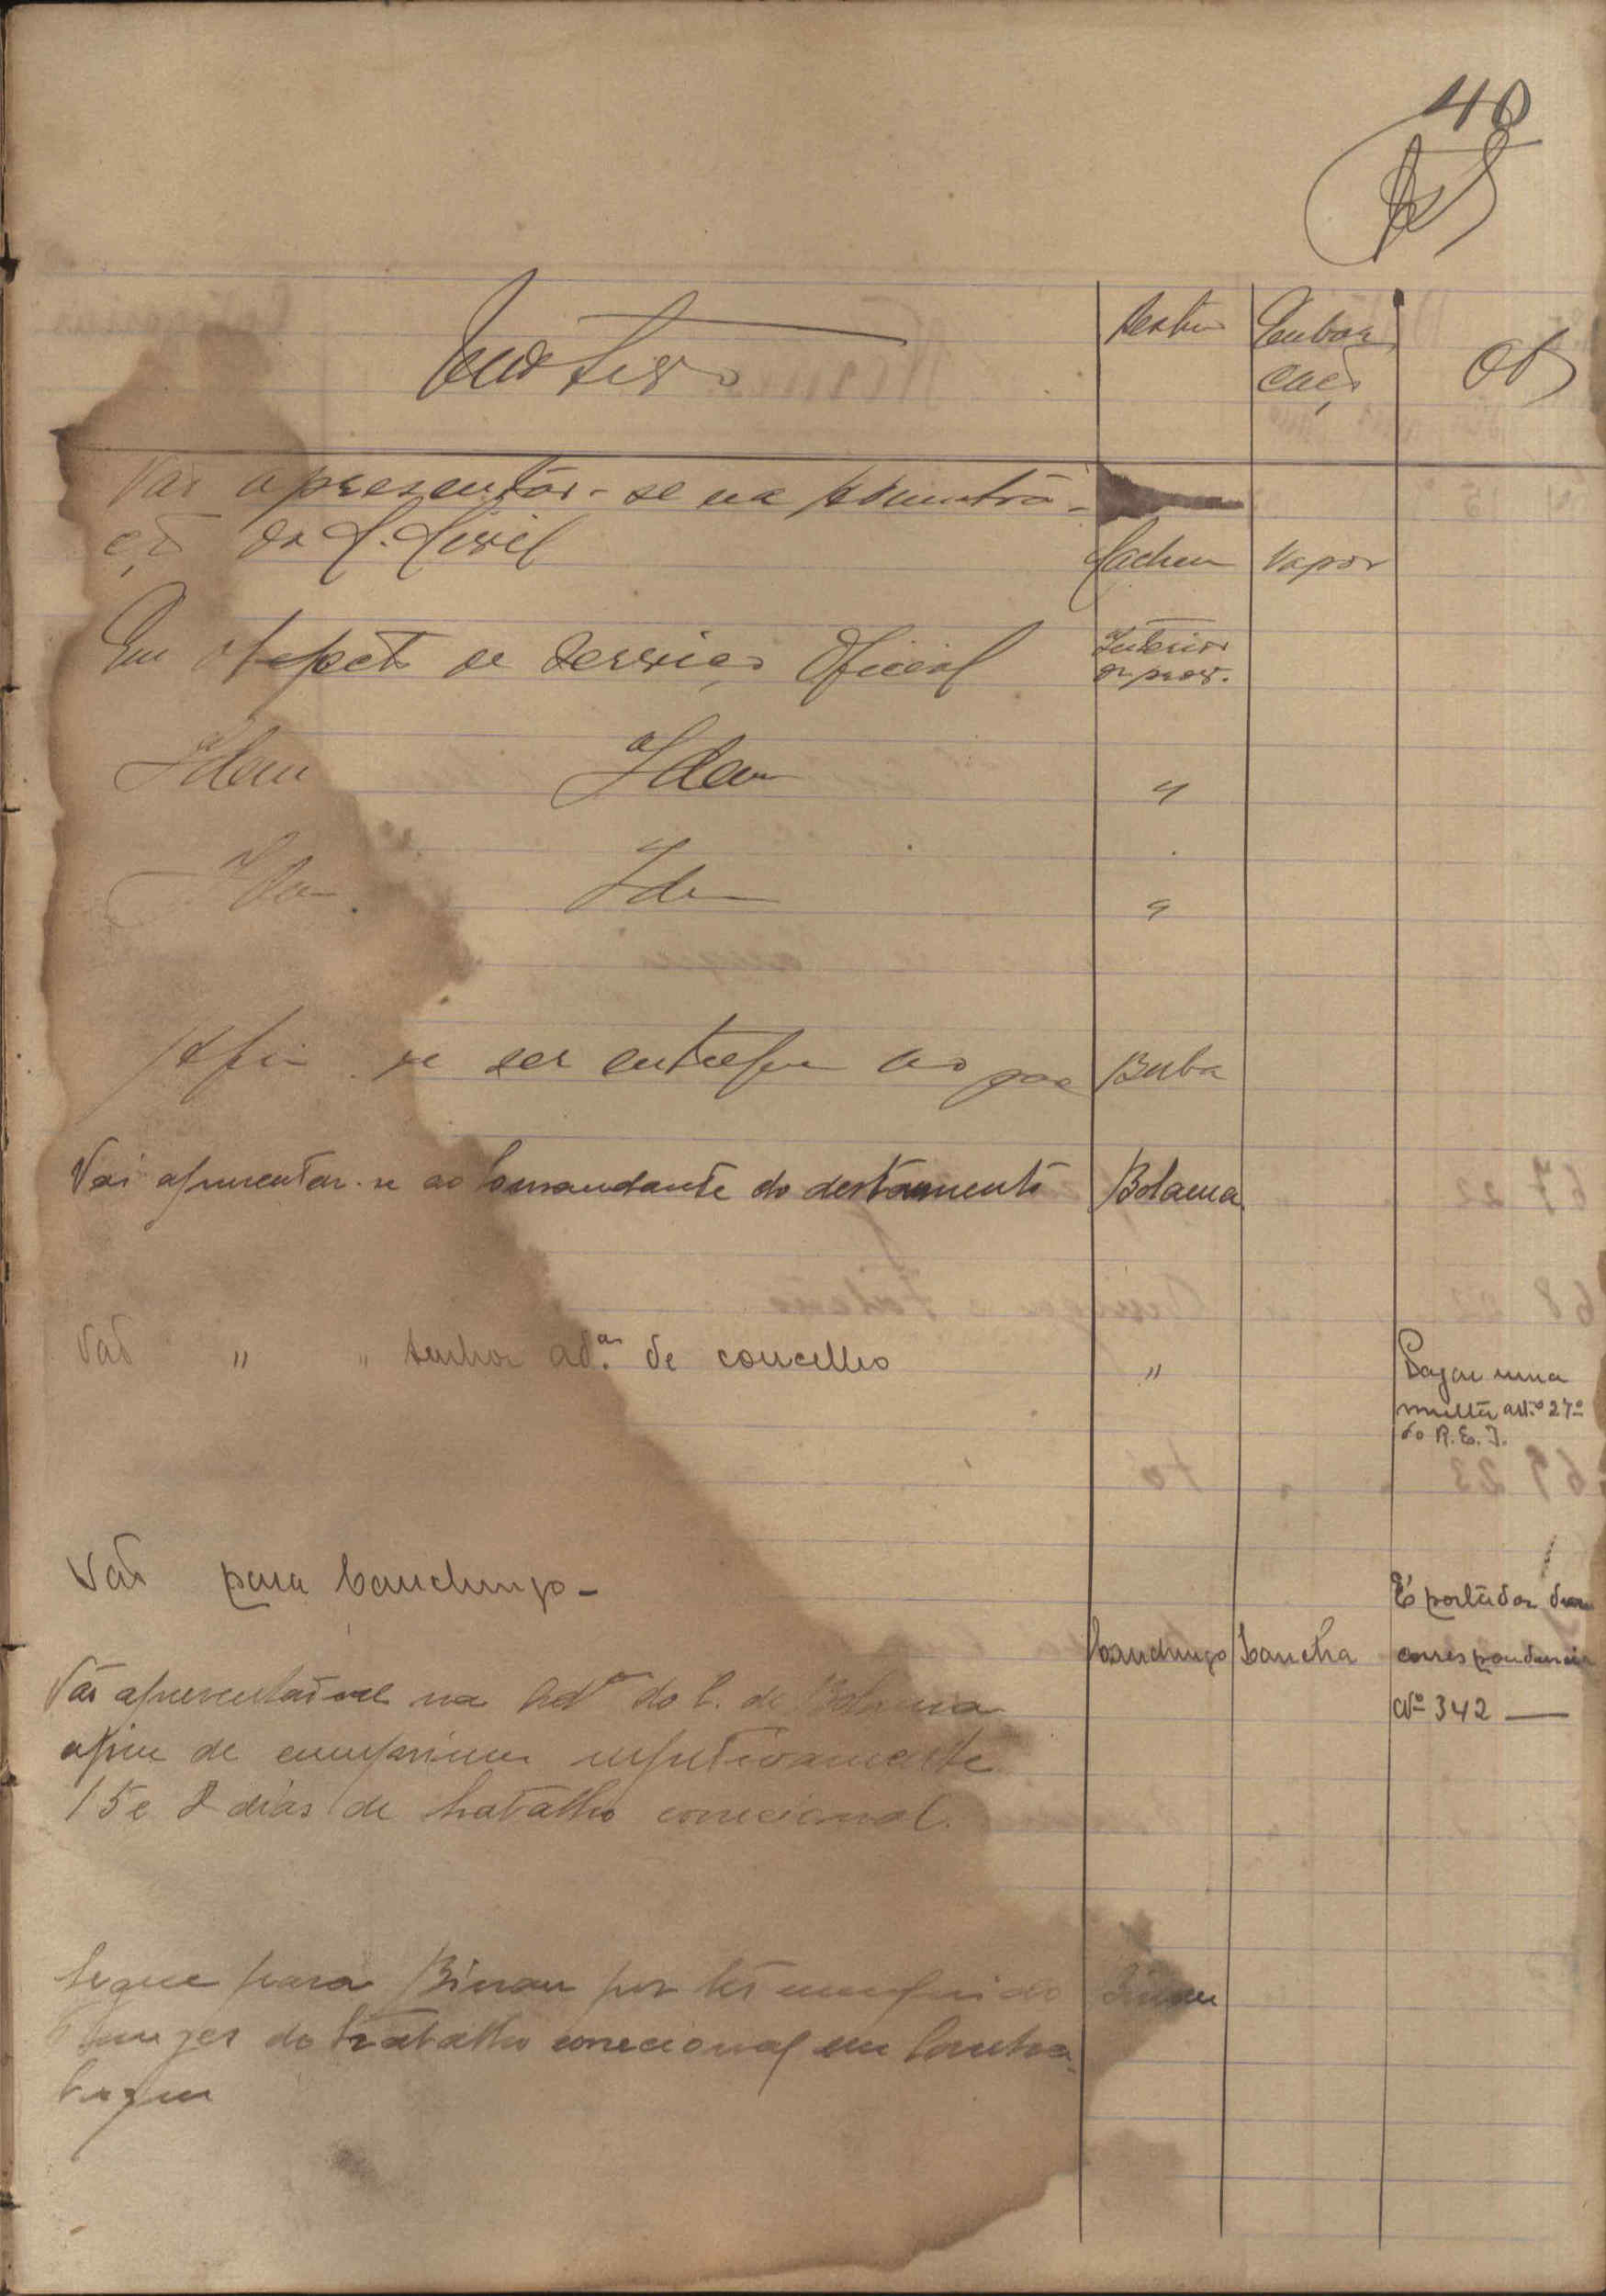 40
Motivo
Destino
Embar
cação
Obs
Vai apresentar-se na Admintra-
ção da C. Civil
Cacheu
Vapor
Em de serviço Oficial
Interior
da prov.
Idem Idem
"
Idem Idem
"
Afim de ser entregue ao pae
Buba
Vai apresentar-se ao Comandante do destacamento
Bolama
Vai " " Senhor ad.or de concelho
"
Pagou uma
multa art.º 27º
do R. E. I.
Vai para Canchungo -
Canchungo
Lancha
É portador duma
correspondencia
Nº 342 —
Vão apresentar-se na Adm do C. de Bolama
afim de cumprirem respetivamente
15 e 8 dias de trabalho correcional.
Segue para Bissau por ter cumprido
6 mezes de trabalho correcional em Cantca
Bissau